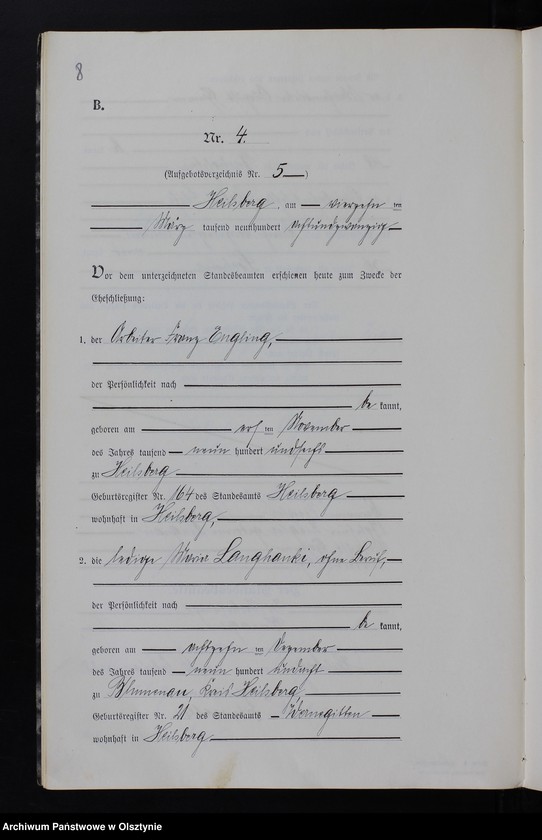 8
B.
Nr. 4.
(Aufgebotsverzeichnis Nr. 5)
Heilsberg, am vierzehn ten
März tausend neunhundert achtundzwanzig
Vor dem unterzeichneten Standesbeamten erschienen heute zum Zwecke der
Eheschließung:
1. der Arbeiter Franz Engling,
der Persönlichkeit nach
be kannt,
geboren am elf ten November
des Jahres tausend neun hundert undsechs
zu Heilsberg
Geburtsregister Nr. 164 des Standesamts Heilsberg
wohnhaft in Heilsberg,
2. die ledige Maria Langhanki, ohne Beruf,
der Persönlichkeit nach
be kannt,
geboren am achtzehn ten Dezember
des Jahres tausend neun hundert undacht
zu Blumenau, Kreis Heilsberg
Geburtsregister Nr. 21 des Standesamts
wohnhaft in Heilsberg
Archiwum Państwowe w Olsztynie